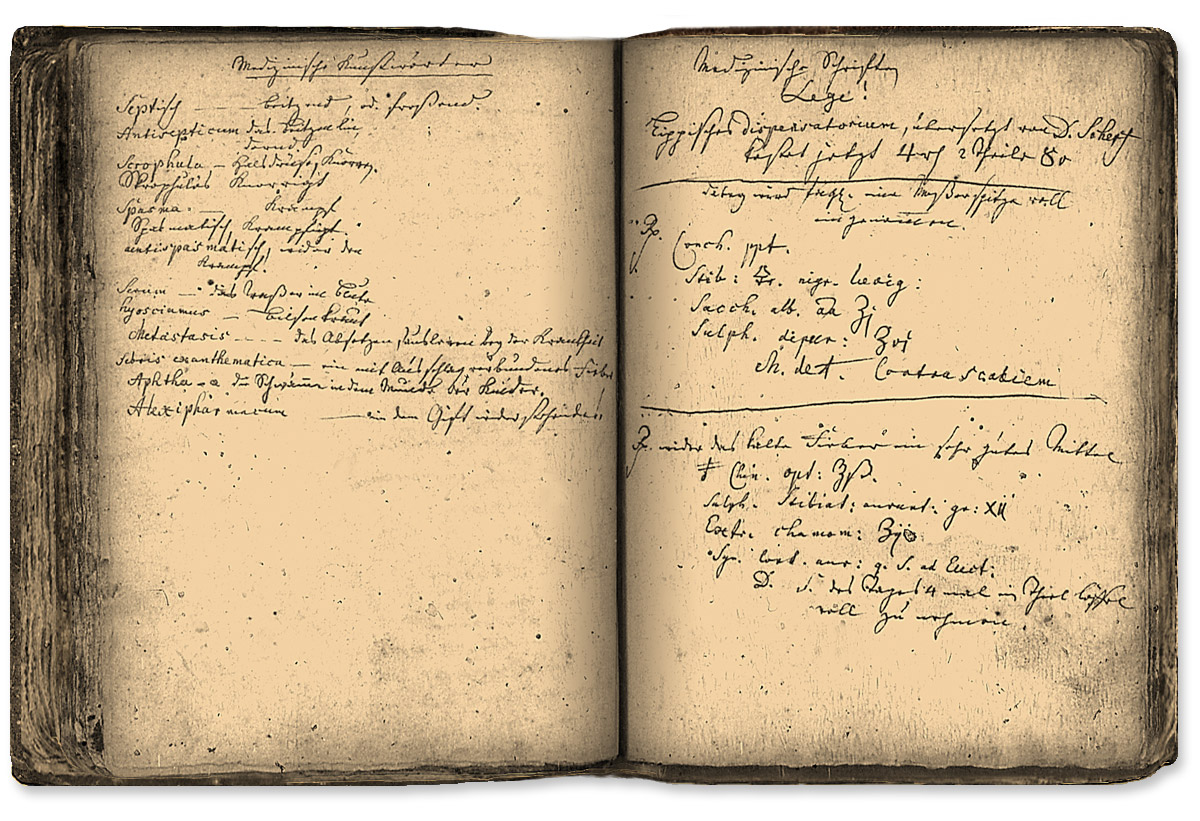 Medizinische Kunstwörter
Septisch — beitzend, od. fressend.
Antisepticum das beitzen lin
dernd
Scrophula — Halsdrüse, Knorren.
Skrophulös Knorrigt
Spasma. Krampf
Spasmatisch, Krampfigt.
antispasmatisch, wider den
Krampf.
Serum — das Wasser im Blute
hyosciamus — bilsenkraut
Metastasis - - - das Absetzen, der Krankheit
febris exanthematica — ein mit Ausschlag verbundenes Fieber
Aphtha - a die Schwämme in dem Munde der Kinder.
Alexipharmacum — ein dem Gift widerstehendes
Medizinische Schriften
Lege!
Lippisches dispensatorium, übersetzt von D. Scherf
kostet jetzt 4 rh 2 Theile 80
davon wird eine Messerspitze voll
eingenommen.
Rp. Conch. ppt.
Stib: nigr. laevig:
Sacch. alb. aa ʒj
Sulph. depur: ʒvj
Sh. det. Contra scabiem
Rp. wider das kalte Fieber ein sehr gutes Mittel
Chin. opt: ʒß.
Sulph. Stibiat: aurant: gr: XII
Extr. chamom: ʒjß
Syr. cort. aur: q. S. ad Elect.
D. S. des Tages 4 mal ein Theelöffel
voll zu nehmen.